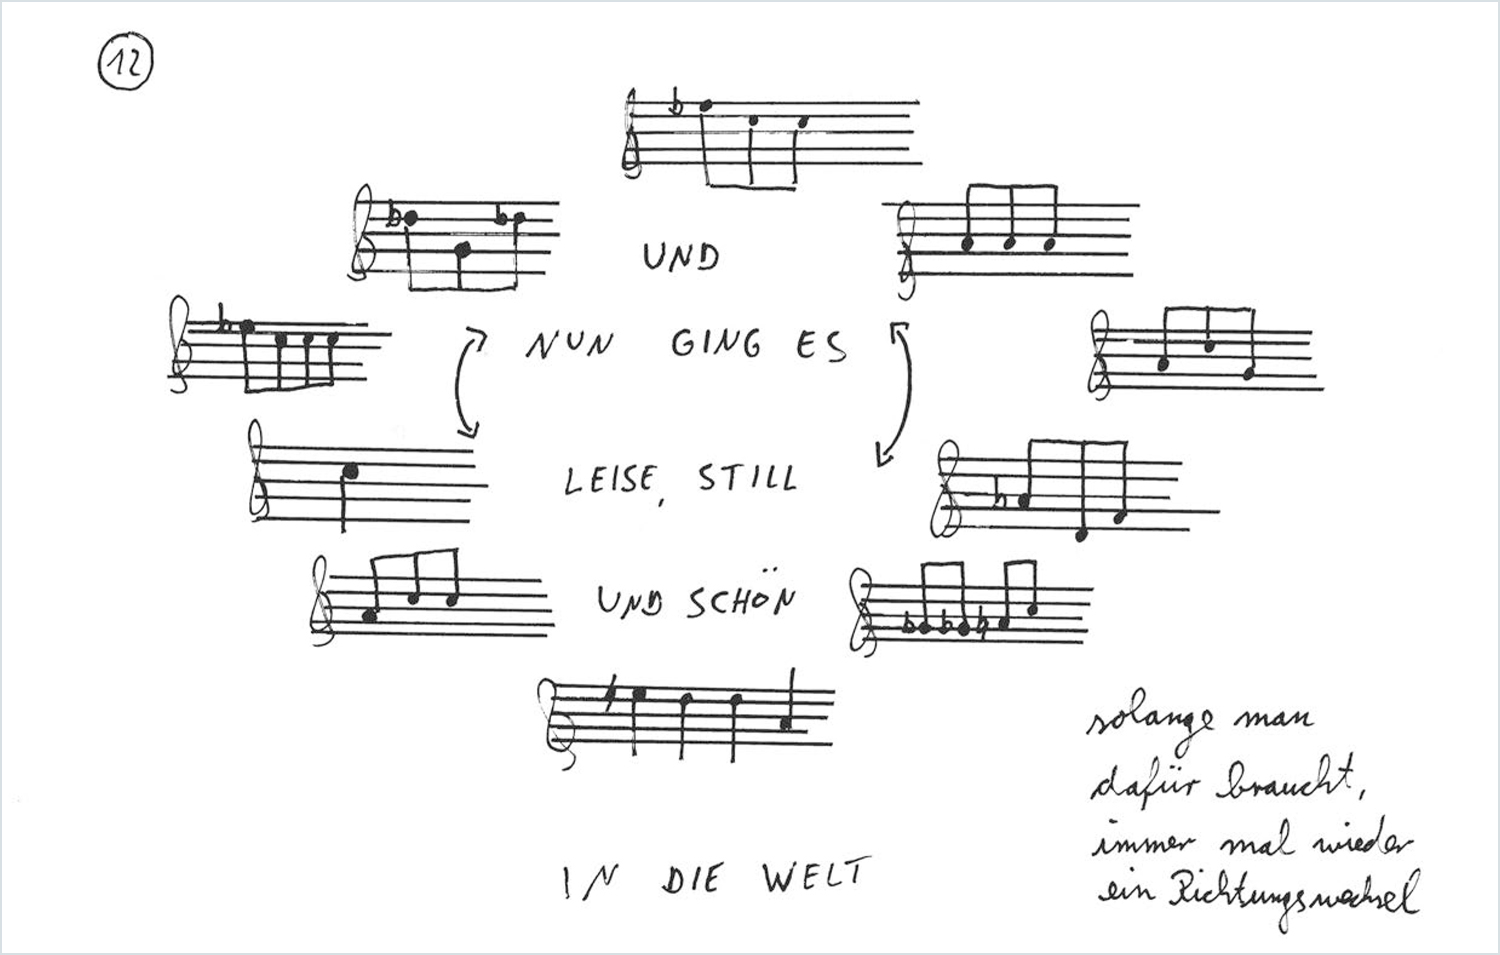 12
UND
NUN GING ES
LEISE, STILL
UND SCHÖN
IN DIE WELT
solange man
dafür braucht,
immer mal wieder
ein Richtungswechsel